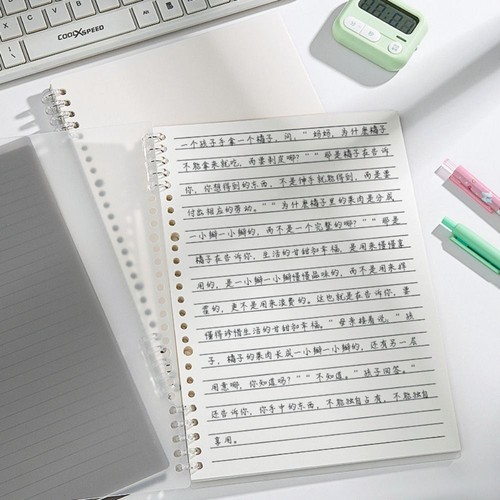 COOLXSPEED
一个孩子手拿一个橘子，问，“妈妈，为什麽橘子
不能拿来就吃，而要剥皮哪？”“那是橘子在告诉
你，你想得到的东西，不是伸手就能得到，而是要
付出相应的劳动。”“为什麽橘子里的果肉是分成
一小瓣一小瓣的，而不是一个完整的哪？”“那是
橘子在告诉你，生活的甘甜和幸福，是用来慢慢享
用的，是一小瓣一小瓣慢慢品味的，而不是用来挥
霍的，更不是用来浪费的。这也就是在告诉你，要
懂得珍惜生活的甘甜和幸福。”母亲接着说，“孩
子，橘子的果肉长成一小瓣一小瓣的，还有另一层
用意哪，你知道吗？”“不知道。”孩子回答。“
还告诉你，你手中的东西，不能独自占有，不能独自
享用。